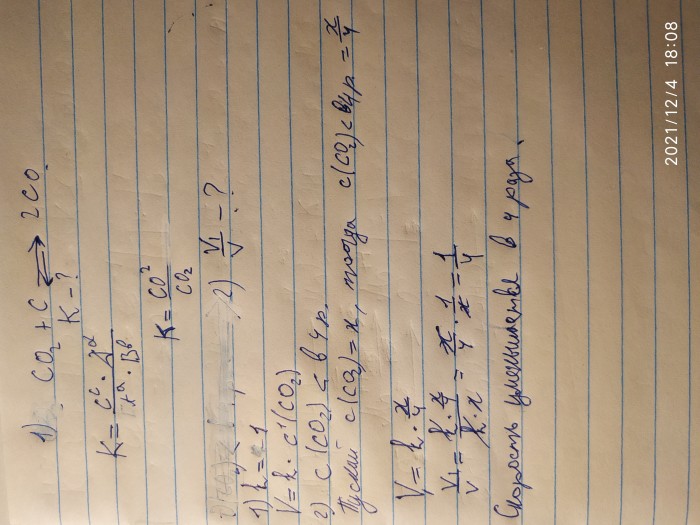 1) CO₂ + C ⇄ 2CO.
K - ?
K = C^c · D^d / A^a · B^b
K = CO² / CO₂
2) V₁/V - ?
1) n = 1
V = k · c¹(CO₂)
2) C(CO₂) < в 4 р.
Пускай c(CO₂) = x, тогда c(CO₂) < в 4 р = x/4
V = k · x/4
V₁/V = k · x/4 / k · x = x/4 · 1/x = 1/4
Скорость уменьшится в 4 раза.
2021/12/4 18:08